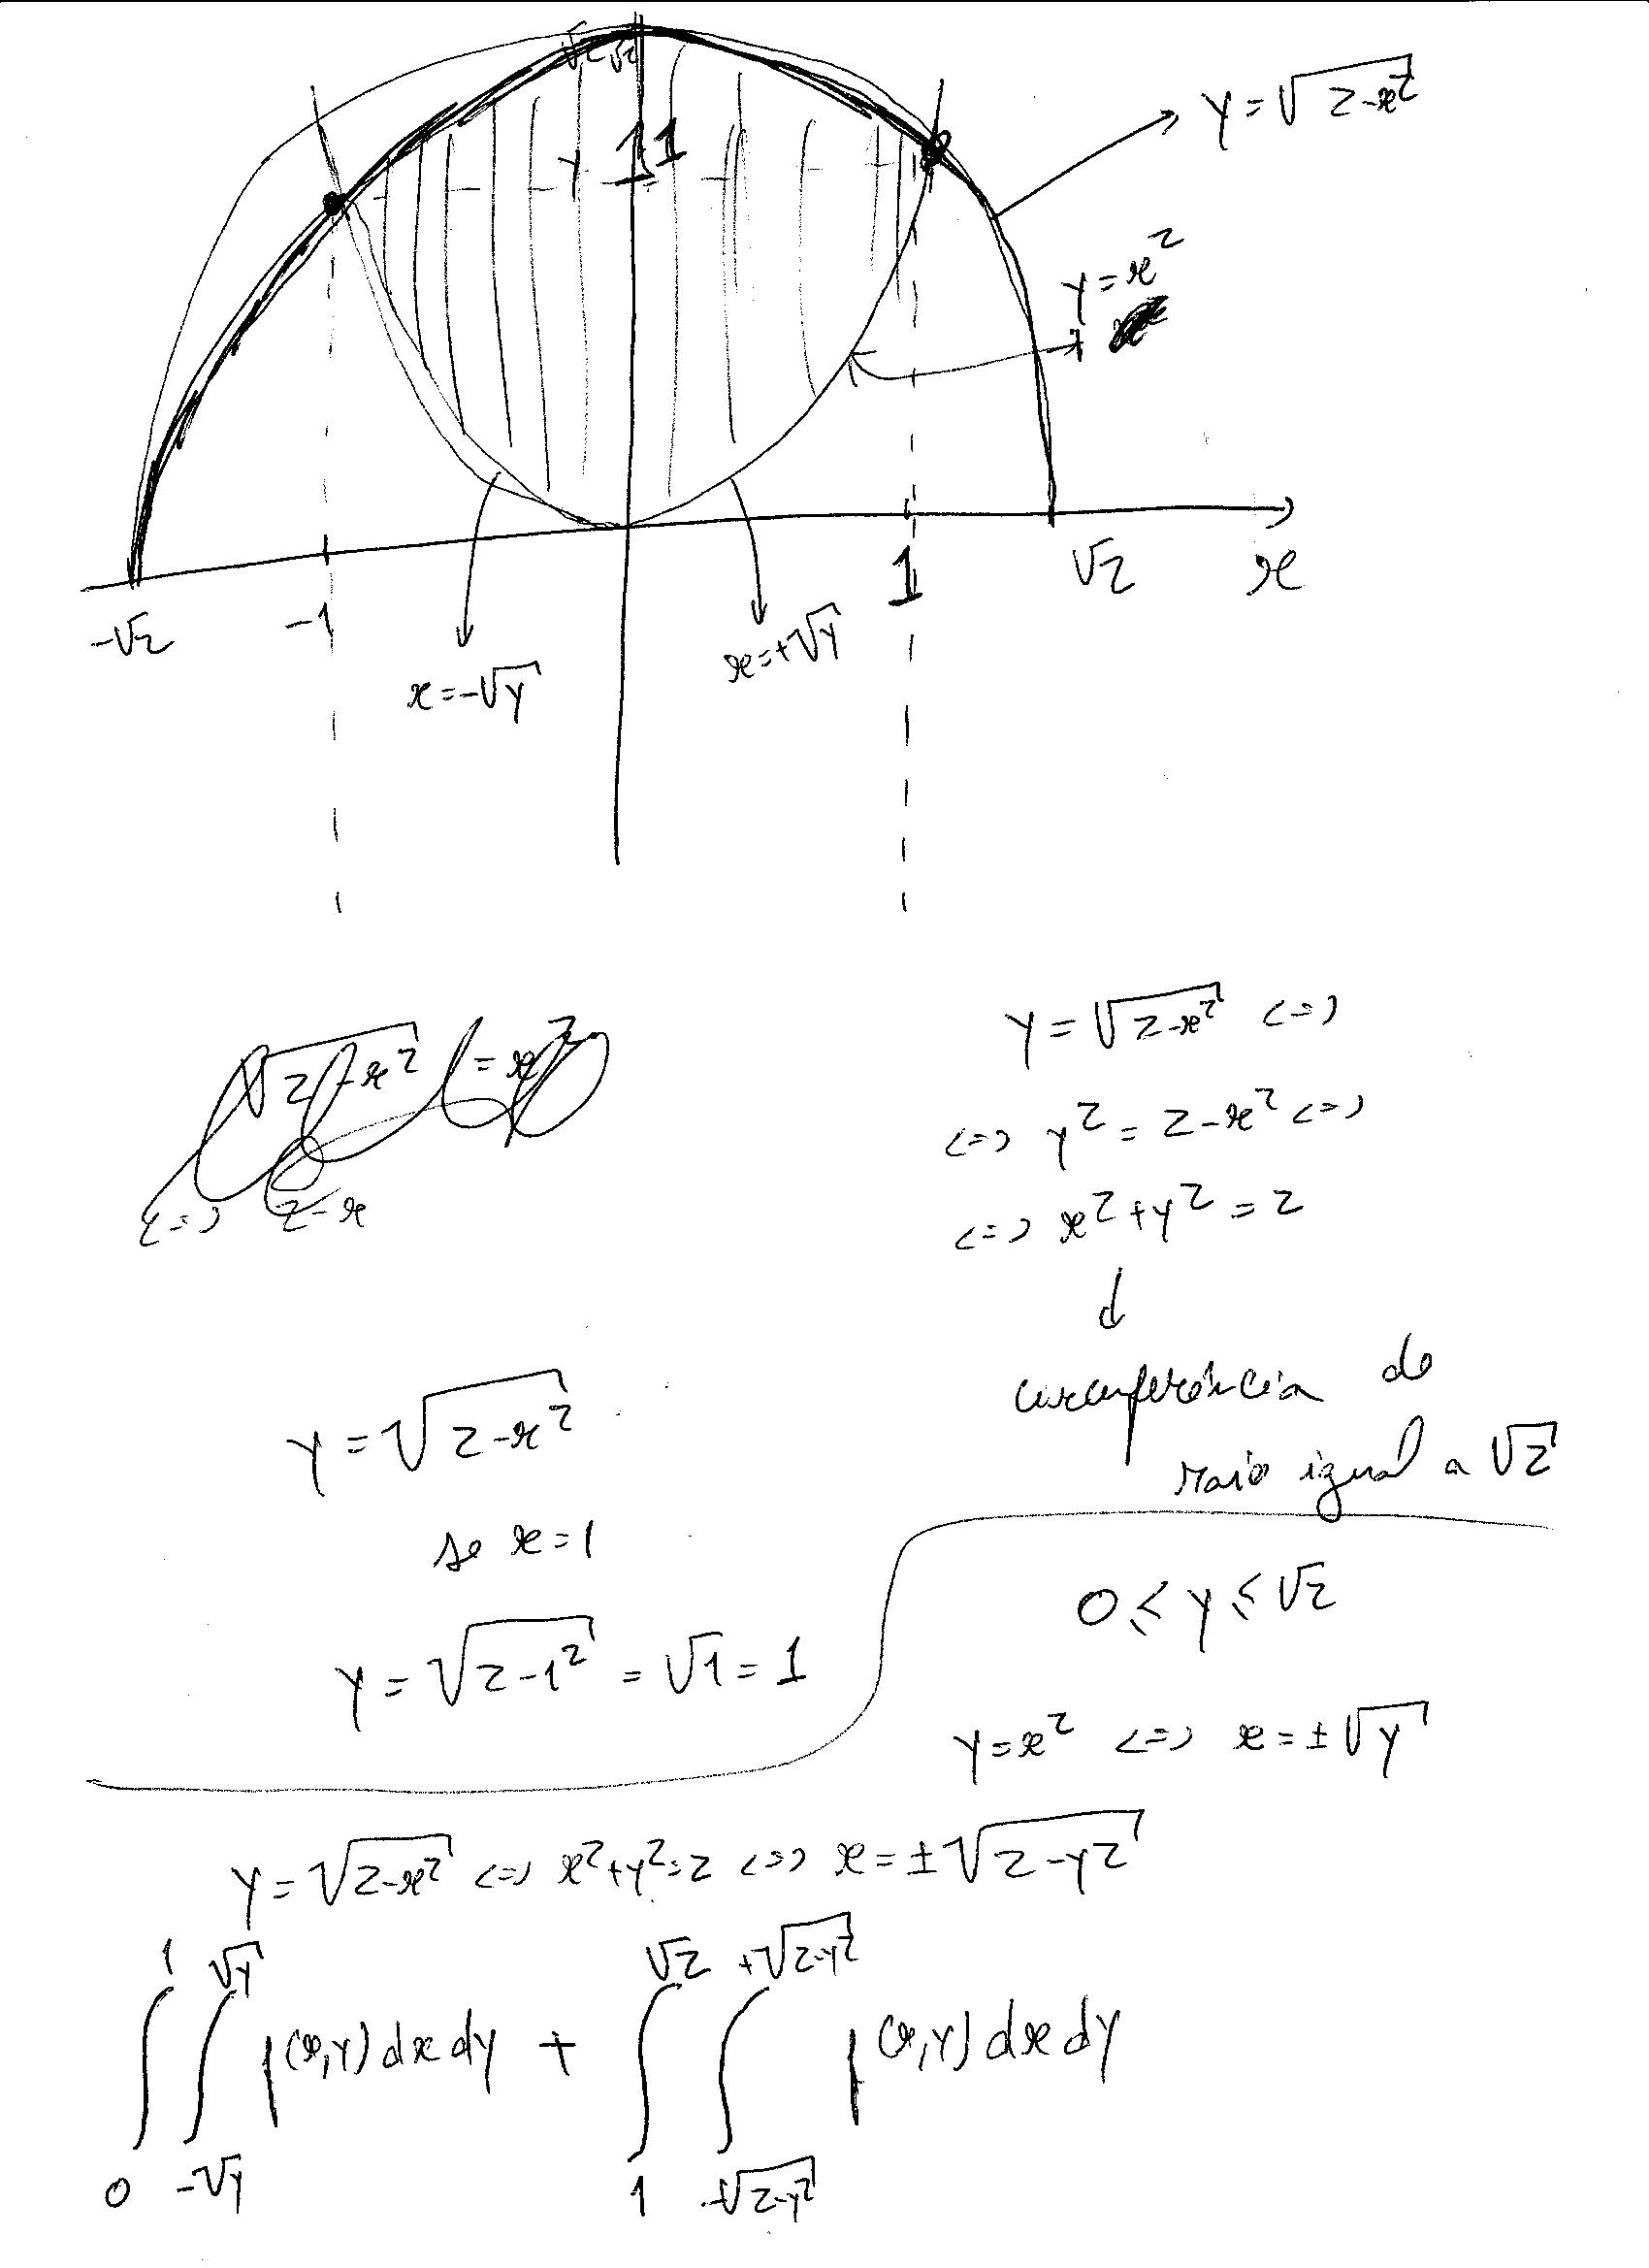 √2 √2
y = √(2-x²)
1 1
y = x²
-√2 -1 1 √2 x
x = -√y
x = +√y
√(2-x²) = x²
<=> 2-x
y = √(2-x²) <=>
<=> y² = 2-x² <=>
<=> x² + y² = 2
↓
circunferência de
raio igual a √2
y = √(2-x²)
se x = 1
y = √(2-1²) = √1 = 1
0 ≤ y ≤ √2
y = x² <=> x = ±√y
y = √(2-x²) <=> x² + y² = 2 <=> x = ±√(2-y²)
∫₀¹ ∫_{-√y}^{√y} f(x,y) dx dy + ∫₁^{√2} ∫_{-√(2-y²)}^{+√(2-y²)} f(x,y) dx dy